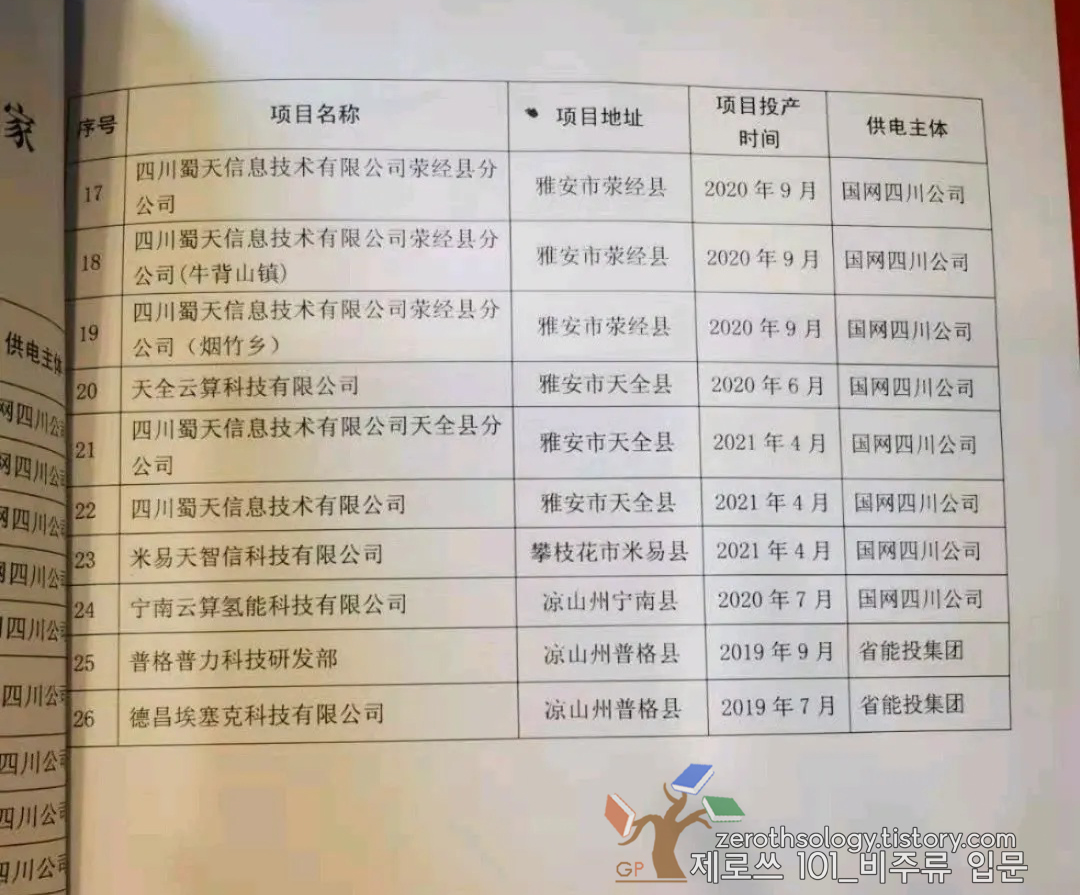 家
供电主体
网四川公司
网四川公司
网四川公司
网四川公司
四川公司
四川公司
四川公司
四川公司
四川公司
序号 项目名称 项目地址 项目投产
时间 供电主体
17 四川蜀天信息技术有限公司荥经县分
公司 雅安市荥经县 2020 年 9 月 国网四川公司
18 四川蜀天信息技术有限公司荥经县分
公司(牛背山镇) 雅安市荥经县 2020 年 9 月 国网四川公司
19 四川蜀天信息技术有限公司荥经县分
公司（烟竹乡） 雅安市荥经县 2020 年 9 月 国网四川公司
20 天全云算科技有限公司 雅安市天全县 2020 年 6 月 国网四川公司
21 四川蜀天信息技术有限公司天全县分
公司 雅安市天全县 2021 年 4 月 国网四川公司
22 四川蜀天信息技术有限公司 雅安市天全县 2021 年 4 月 国网四川公司
23 米易天智信科技有限公司 攀枝花市米易县 2021 年 4 月 国网四川公司
24 宁南云算氢能科技有限公司 凉山州宁南县 2020 年 7 月 国网四川公司
25 普格普力科技研发部 凉山州普格县 2019 年 9 月 省能投集团
26 德昌埃塞克科技有限公司 凉山州普格县 2019 年 7 月 省能投集团
GP
zerothsology.tistory.com
제로쓰 101_비주류 입문